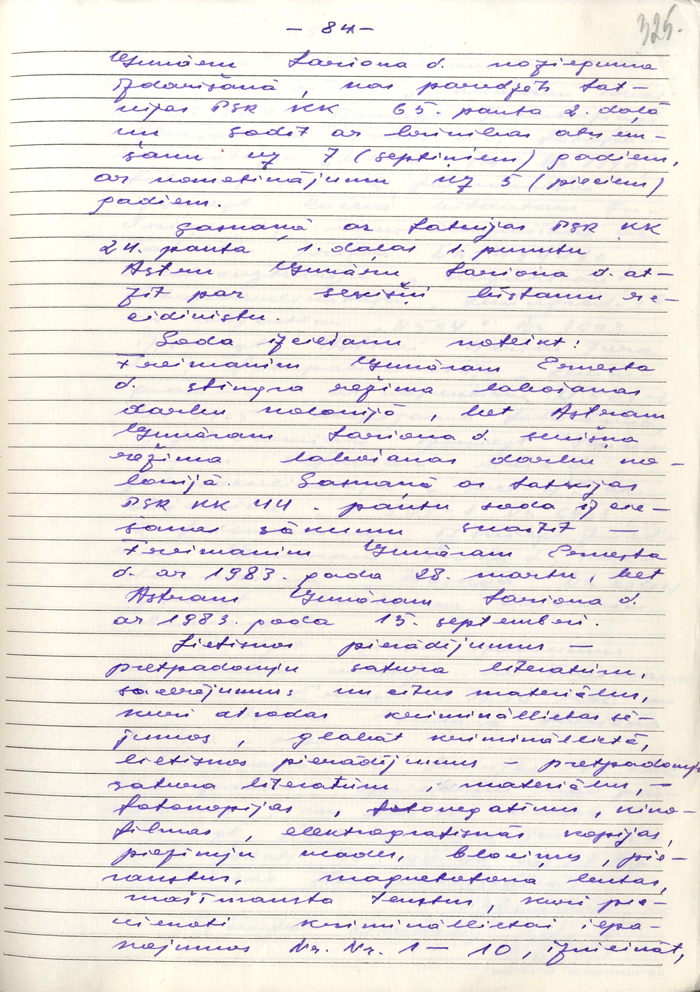 – 84 –
325.
Gunāru Lariona d. nozieguma
izdarīšanā, kas paredzēts Lat-
vijas PSR KK 65. panta 2. daļā
un sodīt ar brīvības atņem-
šanu uz 7 (septiņiem) gadiem,
ar nometinājumu uz 5 (pieciem)
gadiem.
Saskaņā ar Latvijas PSR KK
24. panta 1. daļas 1. punktu
Astru Gunāru Lariona d. at-
zīt par sevišķi bīstamu re-
cidīvistu.
Soda izciešanu noteikt:
Freimanim Gunāram Ernesta
d. stingra režīma labošanas
darbu kolonijā, bet Astram
Gunāram Lariona d. sevišķa
režīma labošanas darbu ko-
lonijā. Saskaņā ar Latvijas
PSR KK 44. pantu soda izcie-
šanas sākumu skaitīt —
Freimanim Gunāram Ernesta
d. ar 1983. gada 28. martu, bet
Astram Gunāram Lariona d.
ar 1983. gada 15. septembri.
Lietiskos pierādījumus —
pretpadomju satura literatūru,
sacerējumus un citus materiālus,
kuri atrodas krimināllietas sē-
jumos, glabāt krimināllietā,
lietiskos pierādījumus – pretpadomju
satura literatūru, materiālus, –
fotokopijas, fotonegatīvus, kino-
filmas, elektrogrāfiskās kopijas,
piezīmju klades, blocinus, pie-
rakstus, magnetofona lentas,
mašīnraksta tekstus, kuri pie-
vienoti krimināllietai iepa-
kojumos Nr. Nr. 1 – 10, iznīcināt,